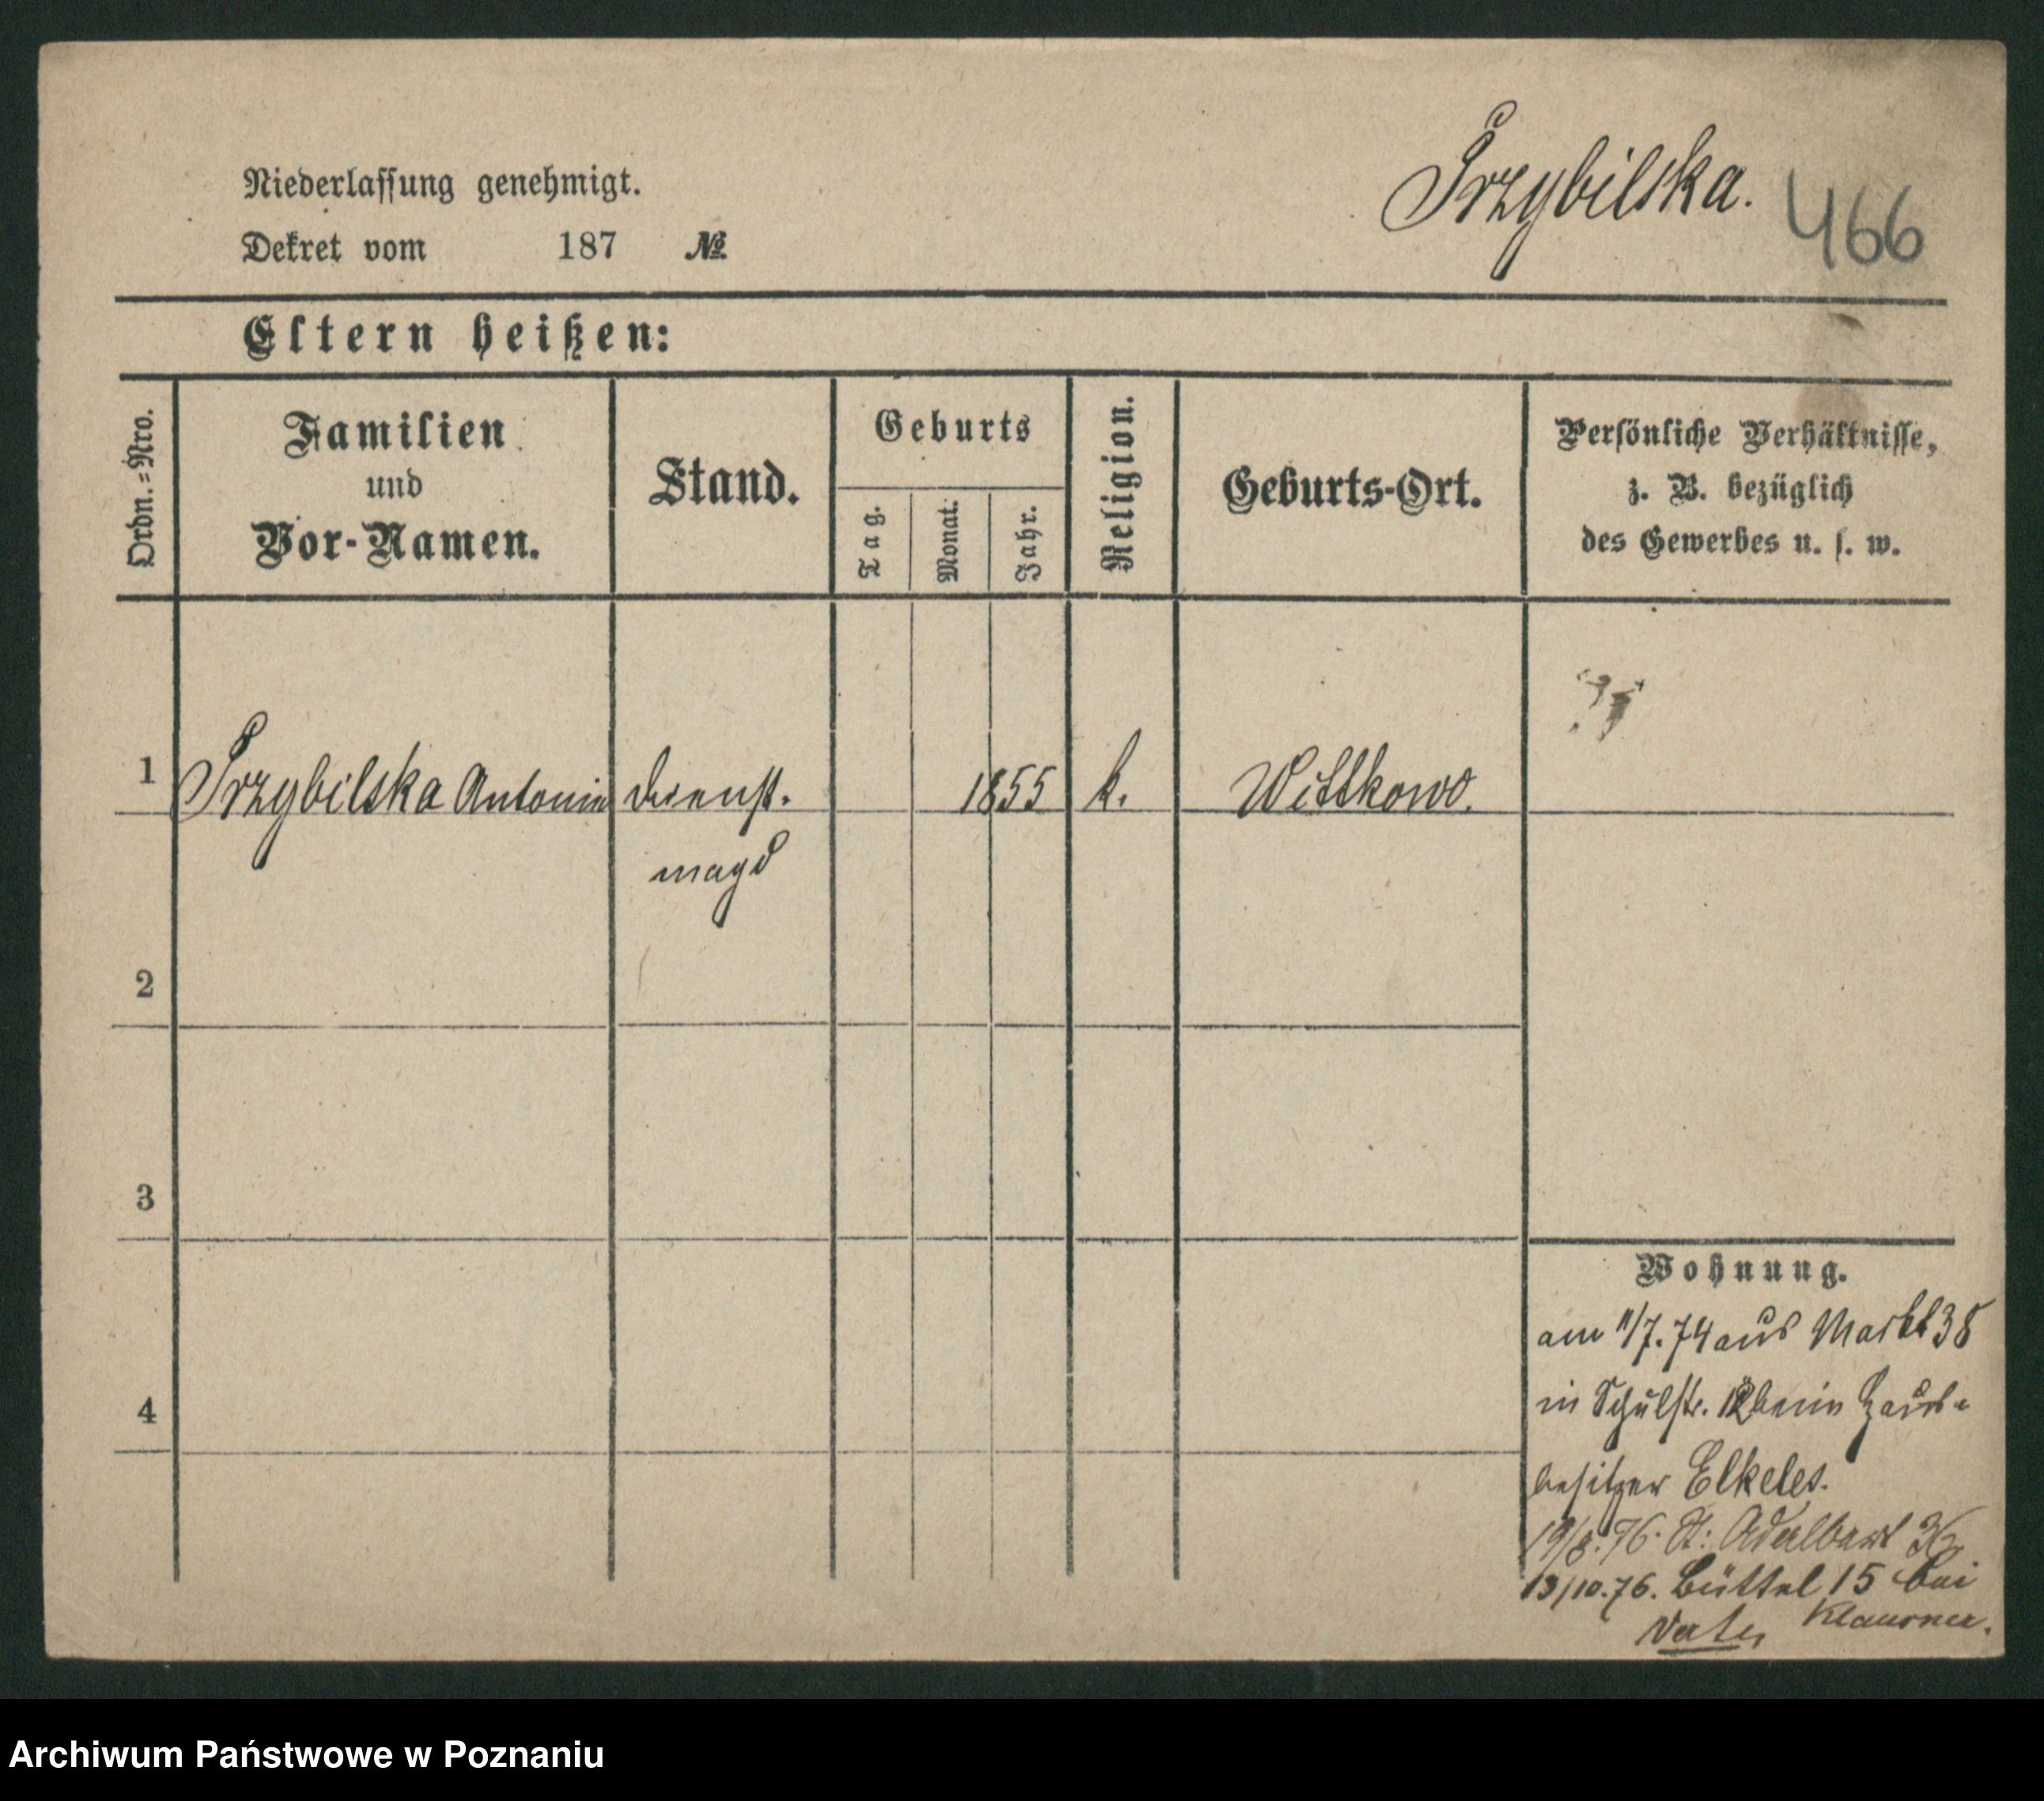 Niederlassung genehmigt.
Dekret vom 187 №
Przybilska.
466
Eltern heißen:
Ordn.=Nro.
Familien
und
Vor-Namen.
Stand.
Geburts
Tag.
Monat.
Jahr.
Religion.
Geburts-Ort.
Persönliche Verhältnisse,
z. B. bezüglich
des Gewerbes u. s. w.
1 Przybilska Antonie Dienst. 1855 k. Wittkowo.
magd
2
3
4
Wohnung.
am 11/7. 74 aus Markt 38
in Schulstr. 12 beim Haus-
besitzer Elkeles.
19/8. 76. St: Adalbert
13/10. 76. Büttel 15 bei
Klausner.